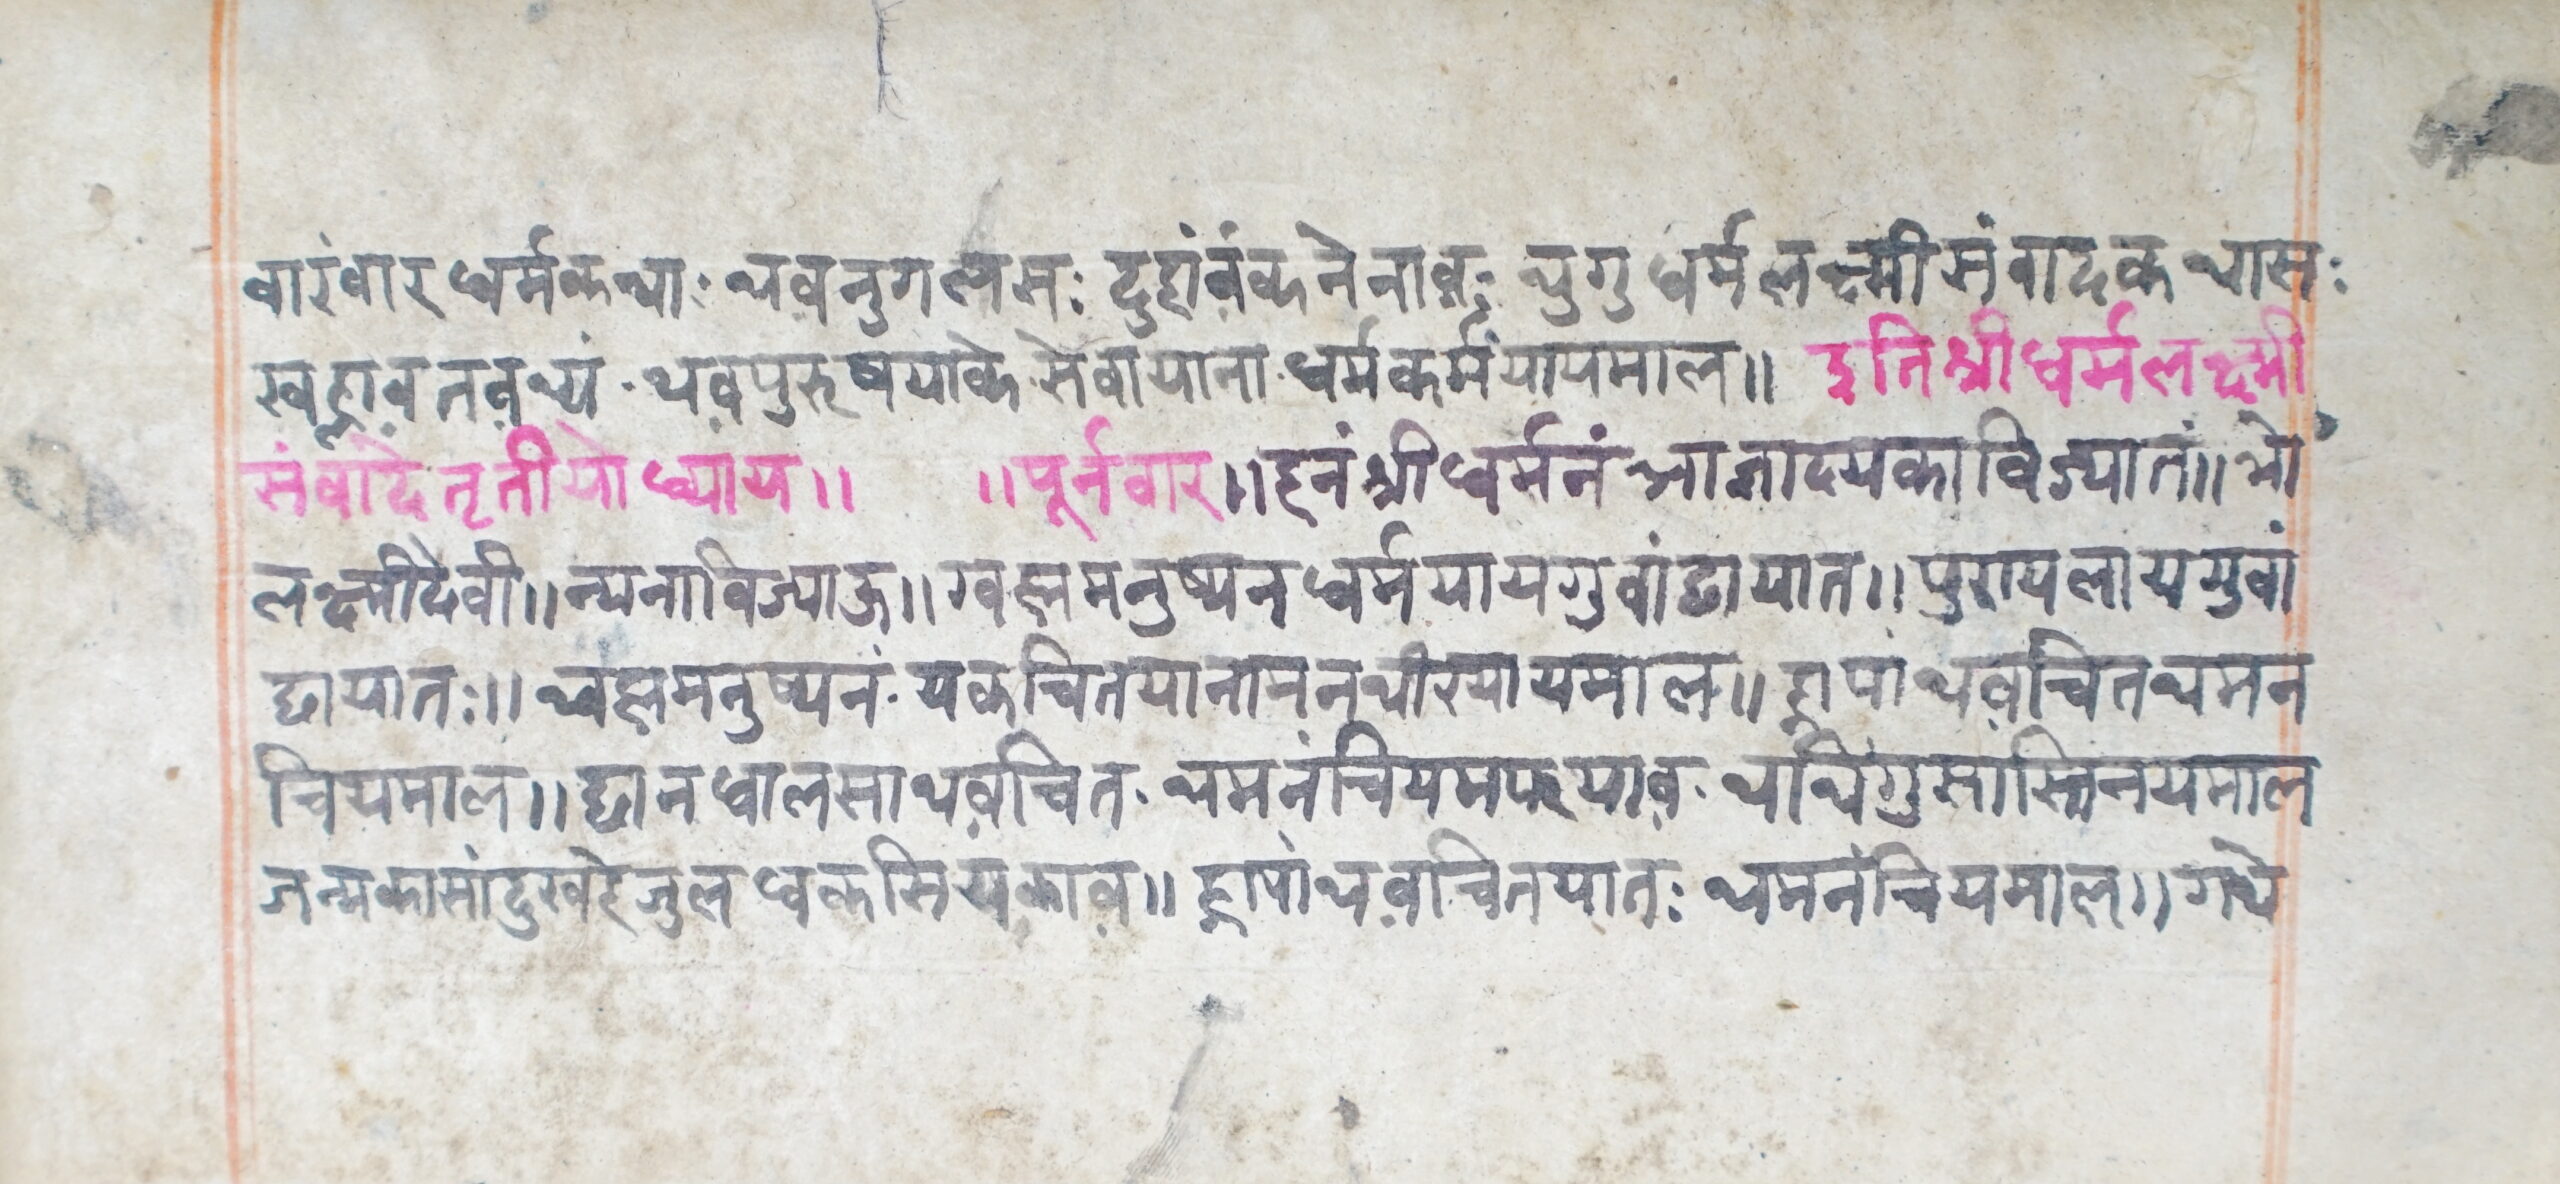 वारंवार धर्मकथाः थव नुगलसः दुहांवंक नेनावः थुगु धर्मलक्ष्मीसंवादकथासः
स्वह्मव तव थ्यं थव पुरुषयाके सेवायाना धर्मकर्मयायमाल॥ इति श्रीधर्मलक्ष्मी
संवादे तृतीयोध्याय॥ ॥पूर्नवार॥ हनं श्रीधर्मनं आज्ञादयका विज्यातं॥ भो
लक्ष्मीदेवी॥ न्यना विज्याऊ॥ ग्वह्म मनुष्यन धर्मयायगु वांछायात॥ पुण्यलायगु वां
छायातः॥ थ्वह्म मनुष्यनं यकचितयाना मन थीरयायमाल॥ ह्नापां थव चित थमन
चियमाल॥ छान धालसा थव चित थमनं चियमफयाव थथिंगु सास्तिनयमाल
जन्मकासां दुखहे जुल धकं सियकाव॥ ह्नापां थव चितयातः थमनं चियमाल॥ गथे